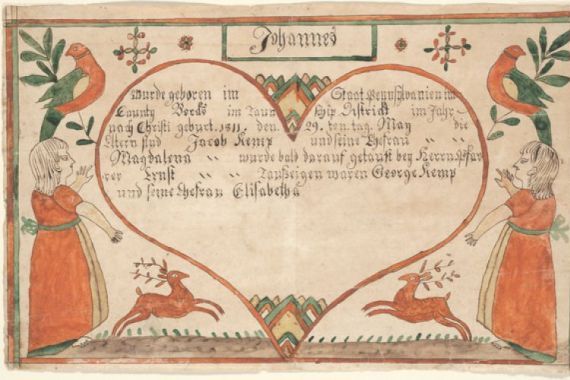 Johannes
Wurde geboren im Staat Pensylvanien im
County Bercks im Taun ship District im Jahr
nach Christi geburt. 1811. den. 29. ten. tag. May die
Eltern sind Jacob Kemp und seine Ehefrau " "
Magdalena " " wurde bald darauf getauft bey Herrn Pfar
rer Ernst " " Taufzeigen waren George Kemp
und seine Ehefrau Elisabetha